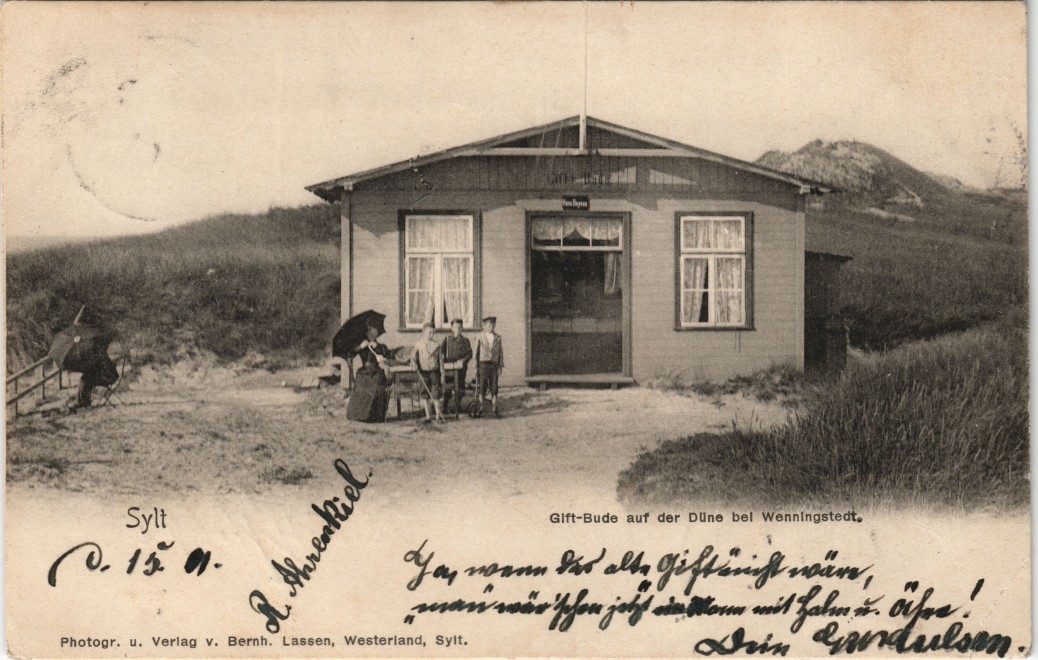 Gift-Bude
Sylt
Gift-Bude auf der Düne bei Wenningstedt.
d. 15 01.
R. Ahrenkiel.
Ja, wenn das alte Gift nicht wäre,
"man wär' schon jetzt ein Mann mit Halm u. Ähre!
Dein
Photogr. u. Verlag v. Bernh. Lassen, Westerland, Sylt.